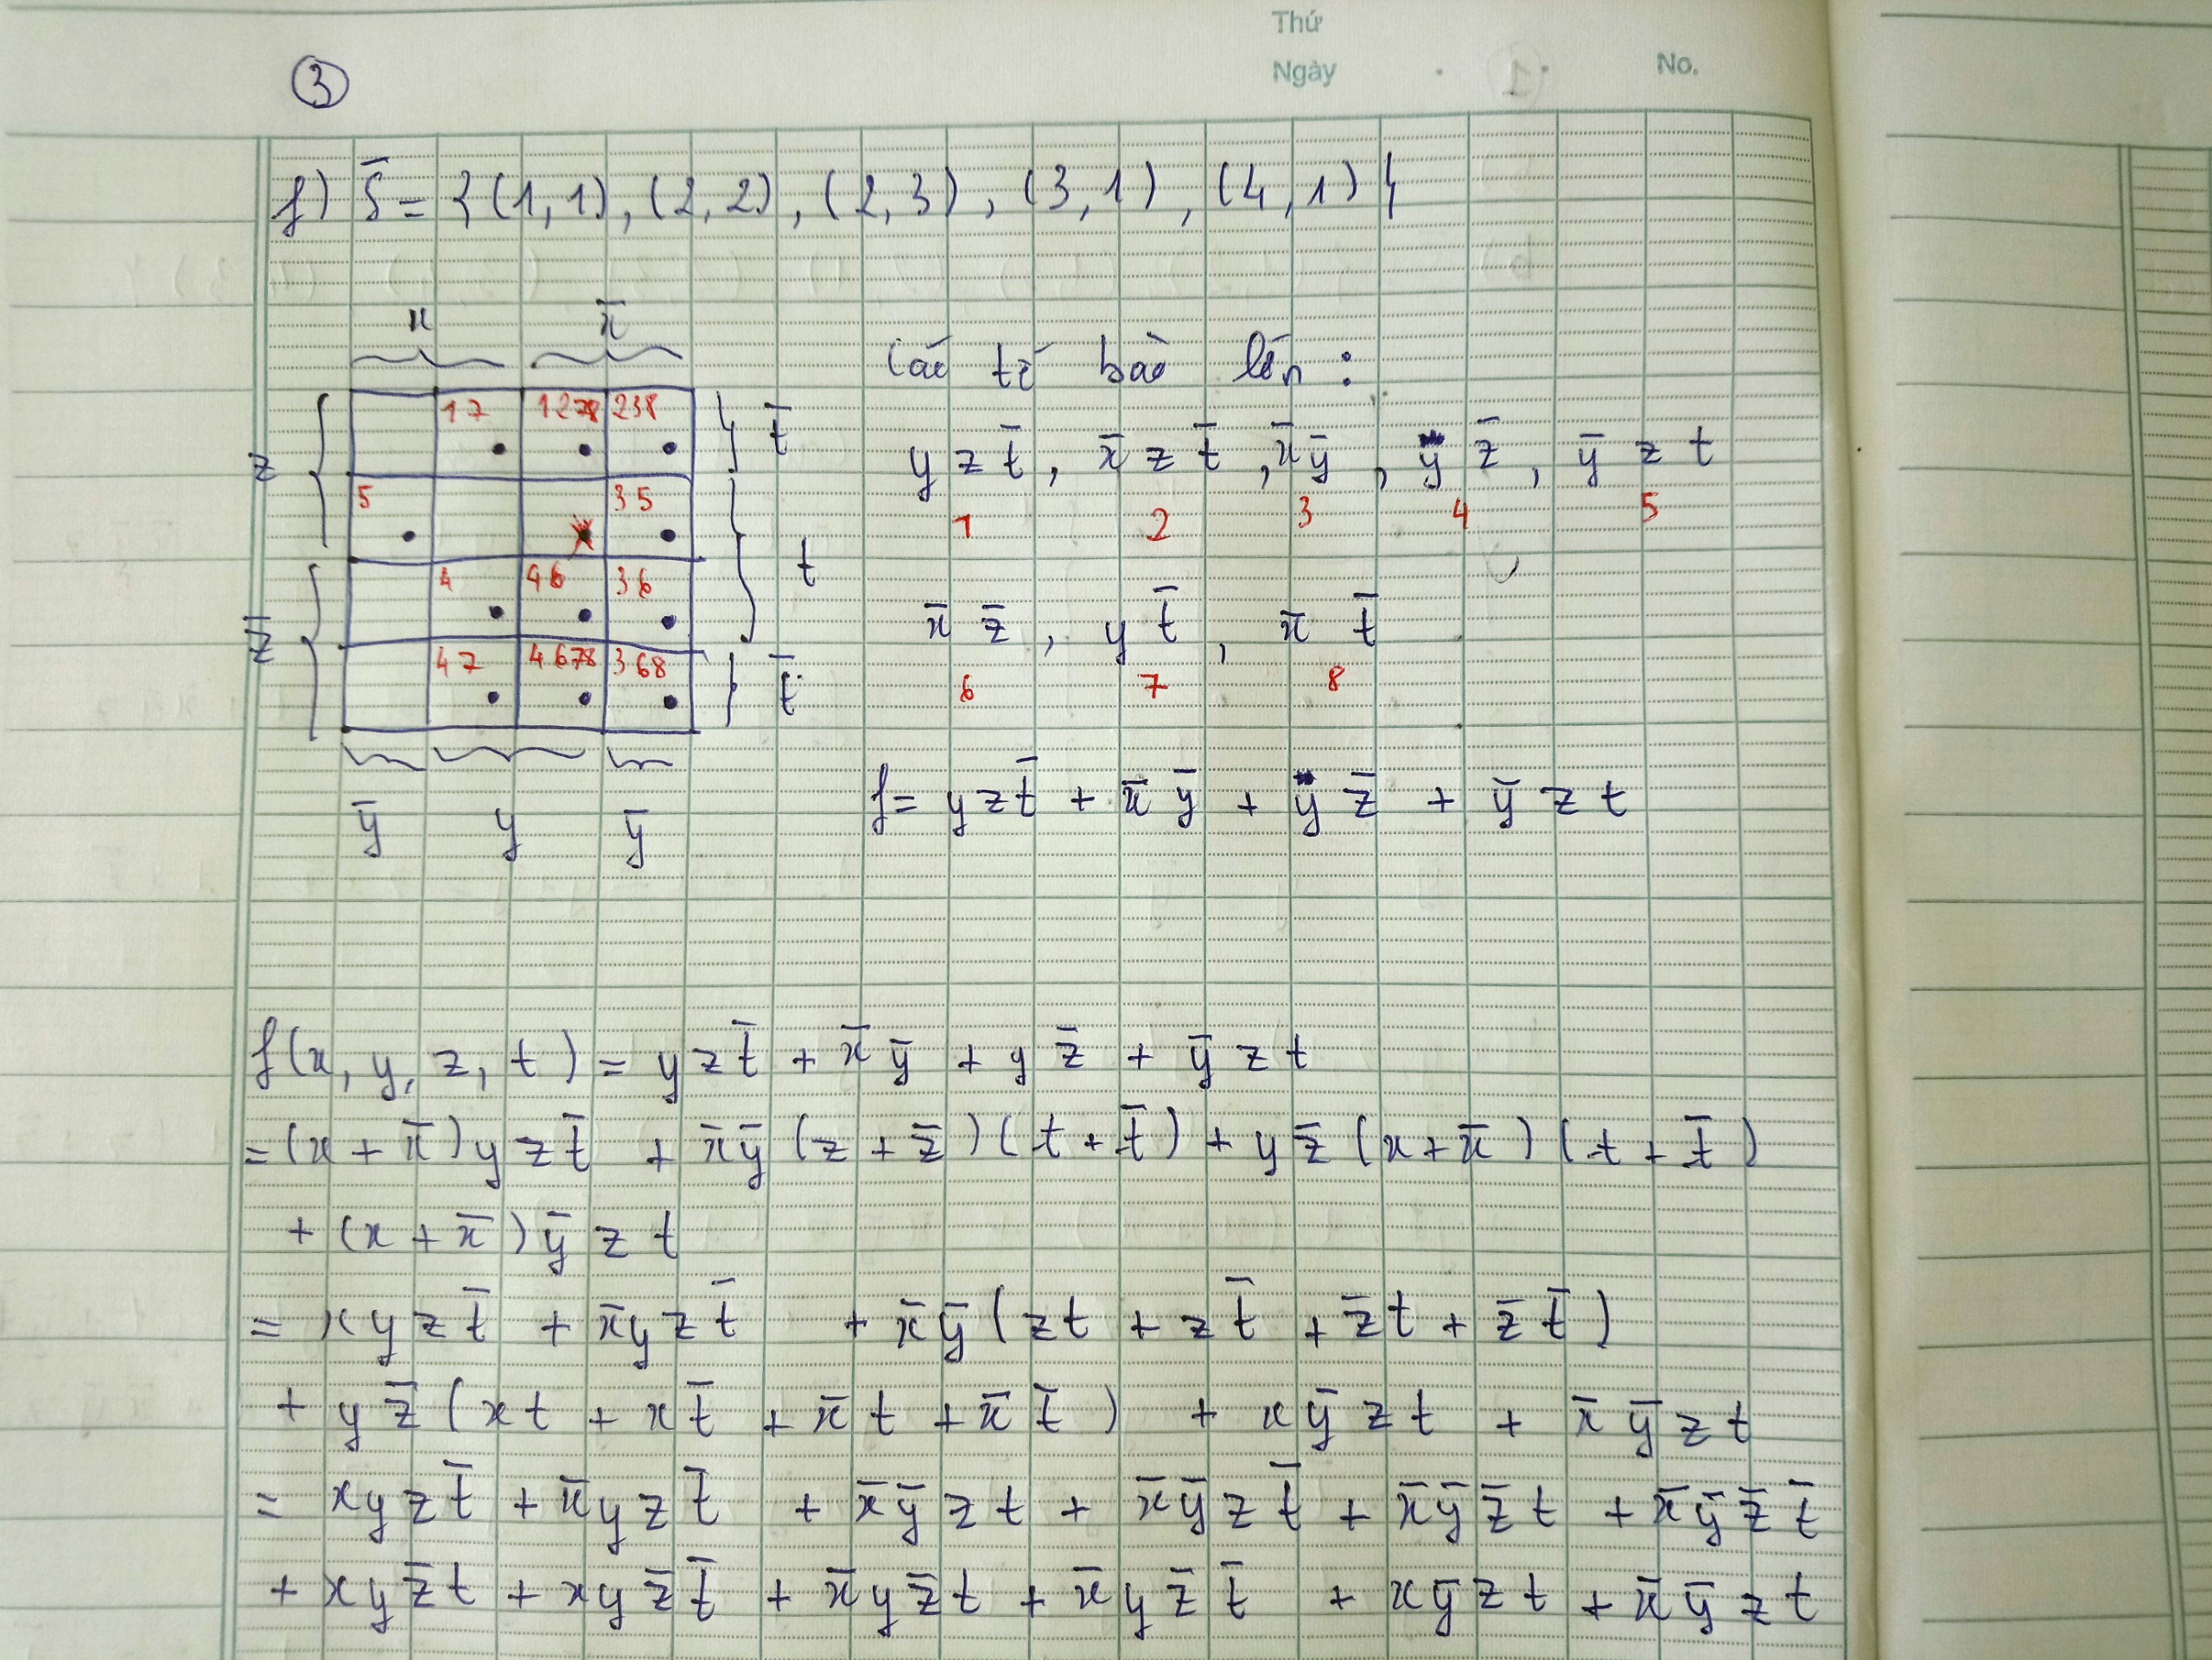 Thứ
Ngày
No.
③
f) S̄ = {(1,1), (2,2), (2,3), (3,1), (4,1)}
x x̄
z z̄
t̄ t t̄
ȳ y ȳ
17 1278 238
5 35
4 46 36
47 4678 368
Các tế bào lớn :
y z t̄ , x̄ z t̄ , x̄ ȳ , y z̄ , ȳ z t
1 2 3 4 5
x̄ z̄ , y t̄ , x̄ t̄
6 7 8
f = y z t̄ + x̄ ȳ + y z̄ + ȳ z t
f(x, y, z, t) = y z t̄ + x̄ ȳ + y z̄ + ȳ z t
= (x + x̄) y z t̄ + x̄ ȳ (z + z̄)(t + t̄) + y z̄ (x + x̄)(t + t̄)
+ (x + x̄) ȳ z t
= x y z t̄ + x̄ y z t̄ + x̄ ȳ (z t + z t̄ + z̄ t + z̄ t̄)
+ y z̄ (x t + x t̄ + x̄ t + x̄ t̄) + x ȳ z t + x̄ ȳ z t
= x y z t̄ + x̄ y z t̄ + x̄ ȳ z t + x̄ ȳ z t̄ + x̄ ȳ z̄ t + x̄ ȳ z̄ t̄
+ x y z̄ t + x y z̄ t̄ + x̄ y z̄ t + x̄ y z̄ t̄ + x ȳ z t + x̄ ȳ z t